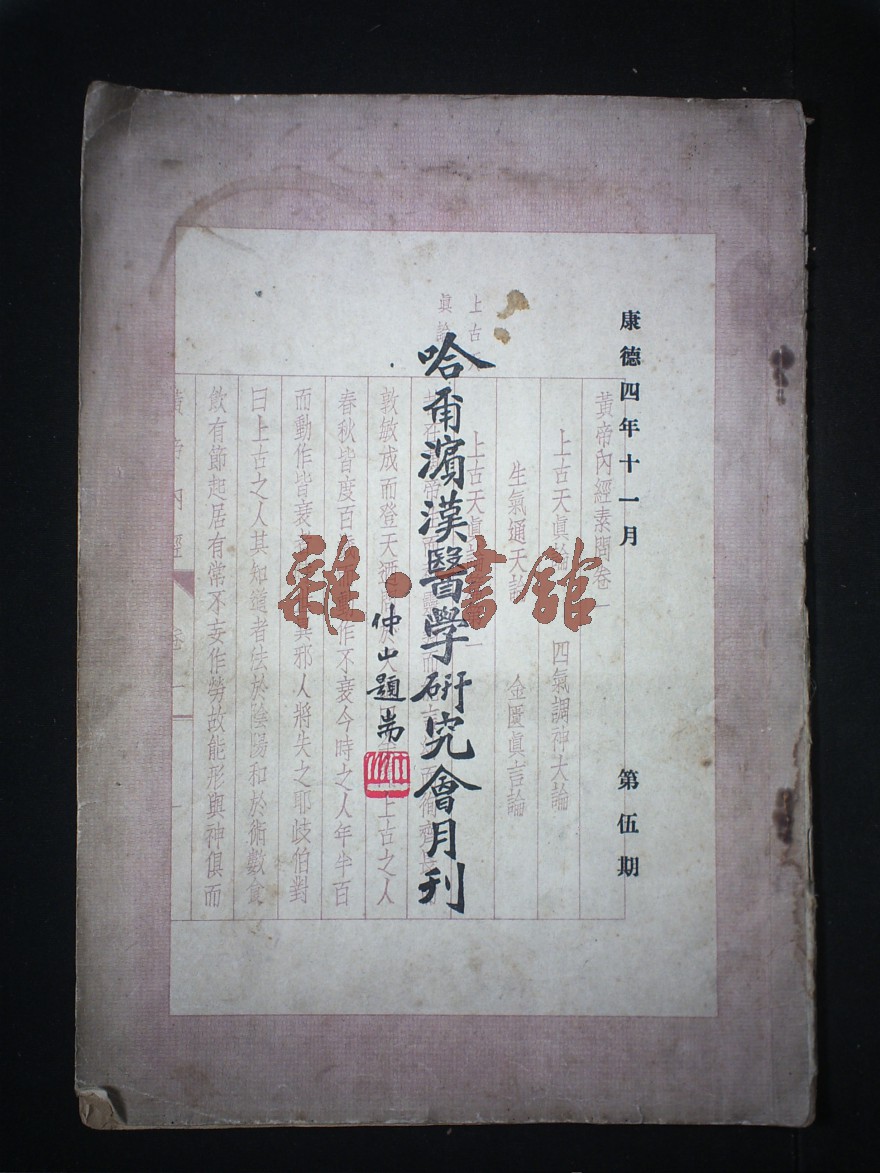 康德四年十一月
第伍期
黃帝內經素問卷一
上古天眞論 四氣調神大論
生氣通天論 金匱眞言論
上古天眞論
哈爾濱漢醫學研究會月刊
仲山題耑
敦敏成而登天 上古之人
春秋皆度百 作不衰今時之人年半百
而動作皆衰 人將失之耶歧伯對
曰上古之人其知道者法於陰陽和於術數食
飮有節起居有常不妄作勞故能形與神俱而
黃帝內經 卷一
雜·書館